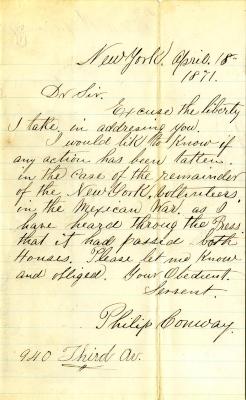 New York, April 18th
1871.
Dr Sir.
Excuse the liberty
I take in addresing you.
I would like to know if
any action has been taken.
in the case of the remainder
of the New York, volenteers
in the Mexican War. as I
have heard throug the Press
that it had passed both
Houses. Please let me know
and obliged. Your Obedient.
Servent.
Philip Conway.
940 Third Av.